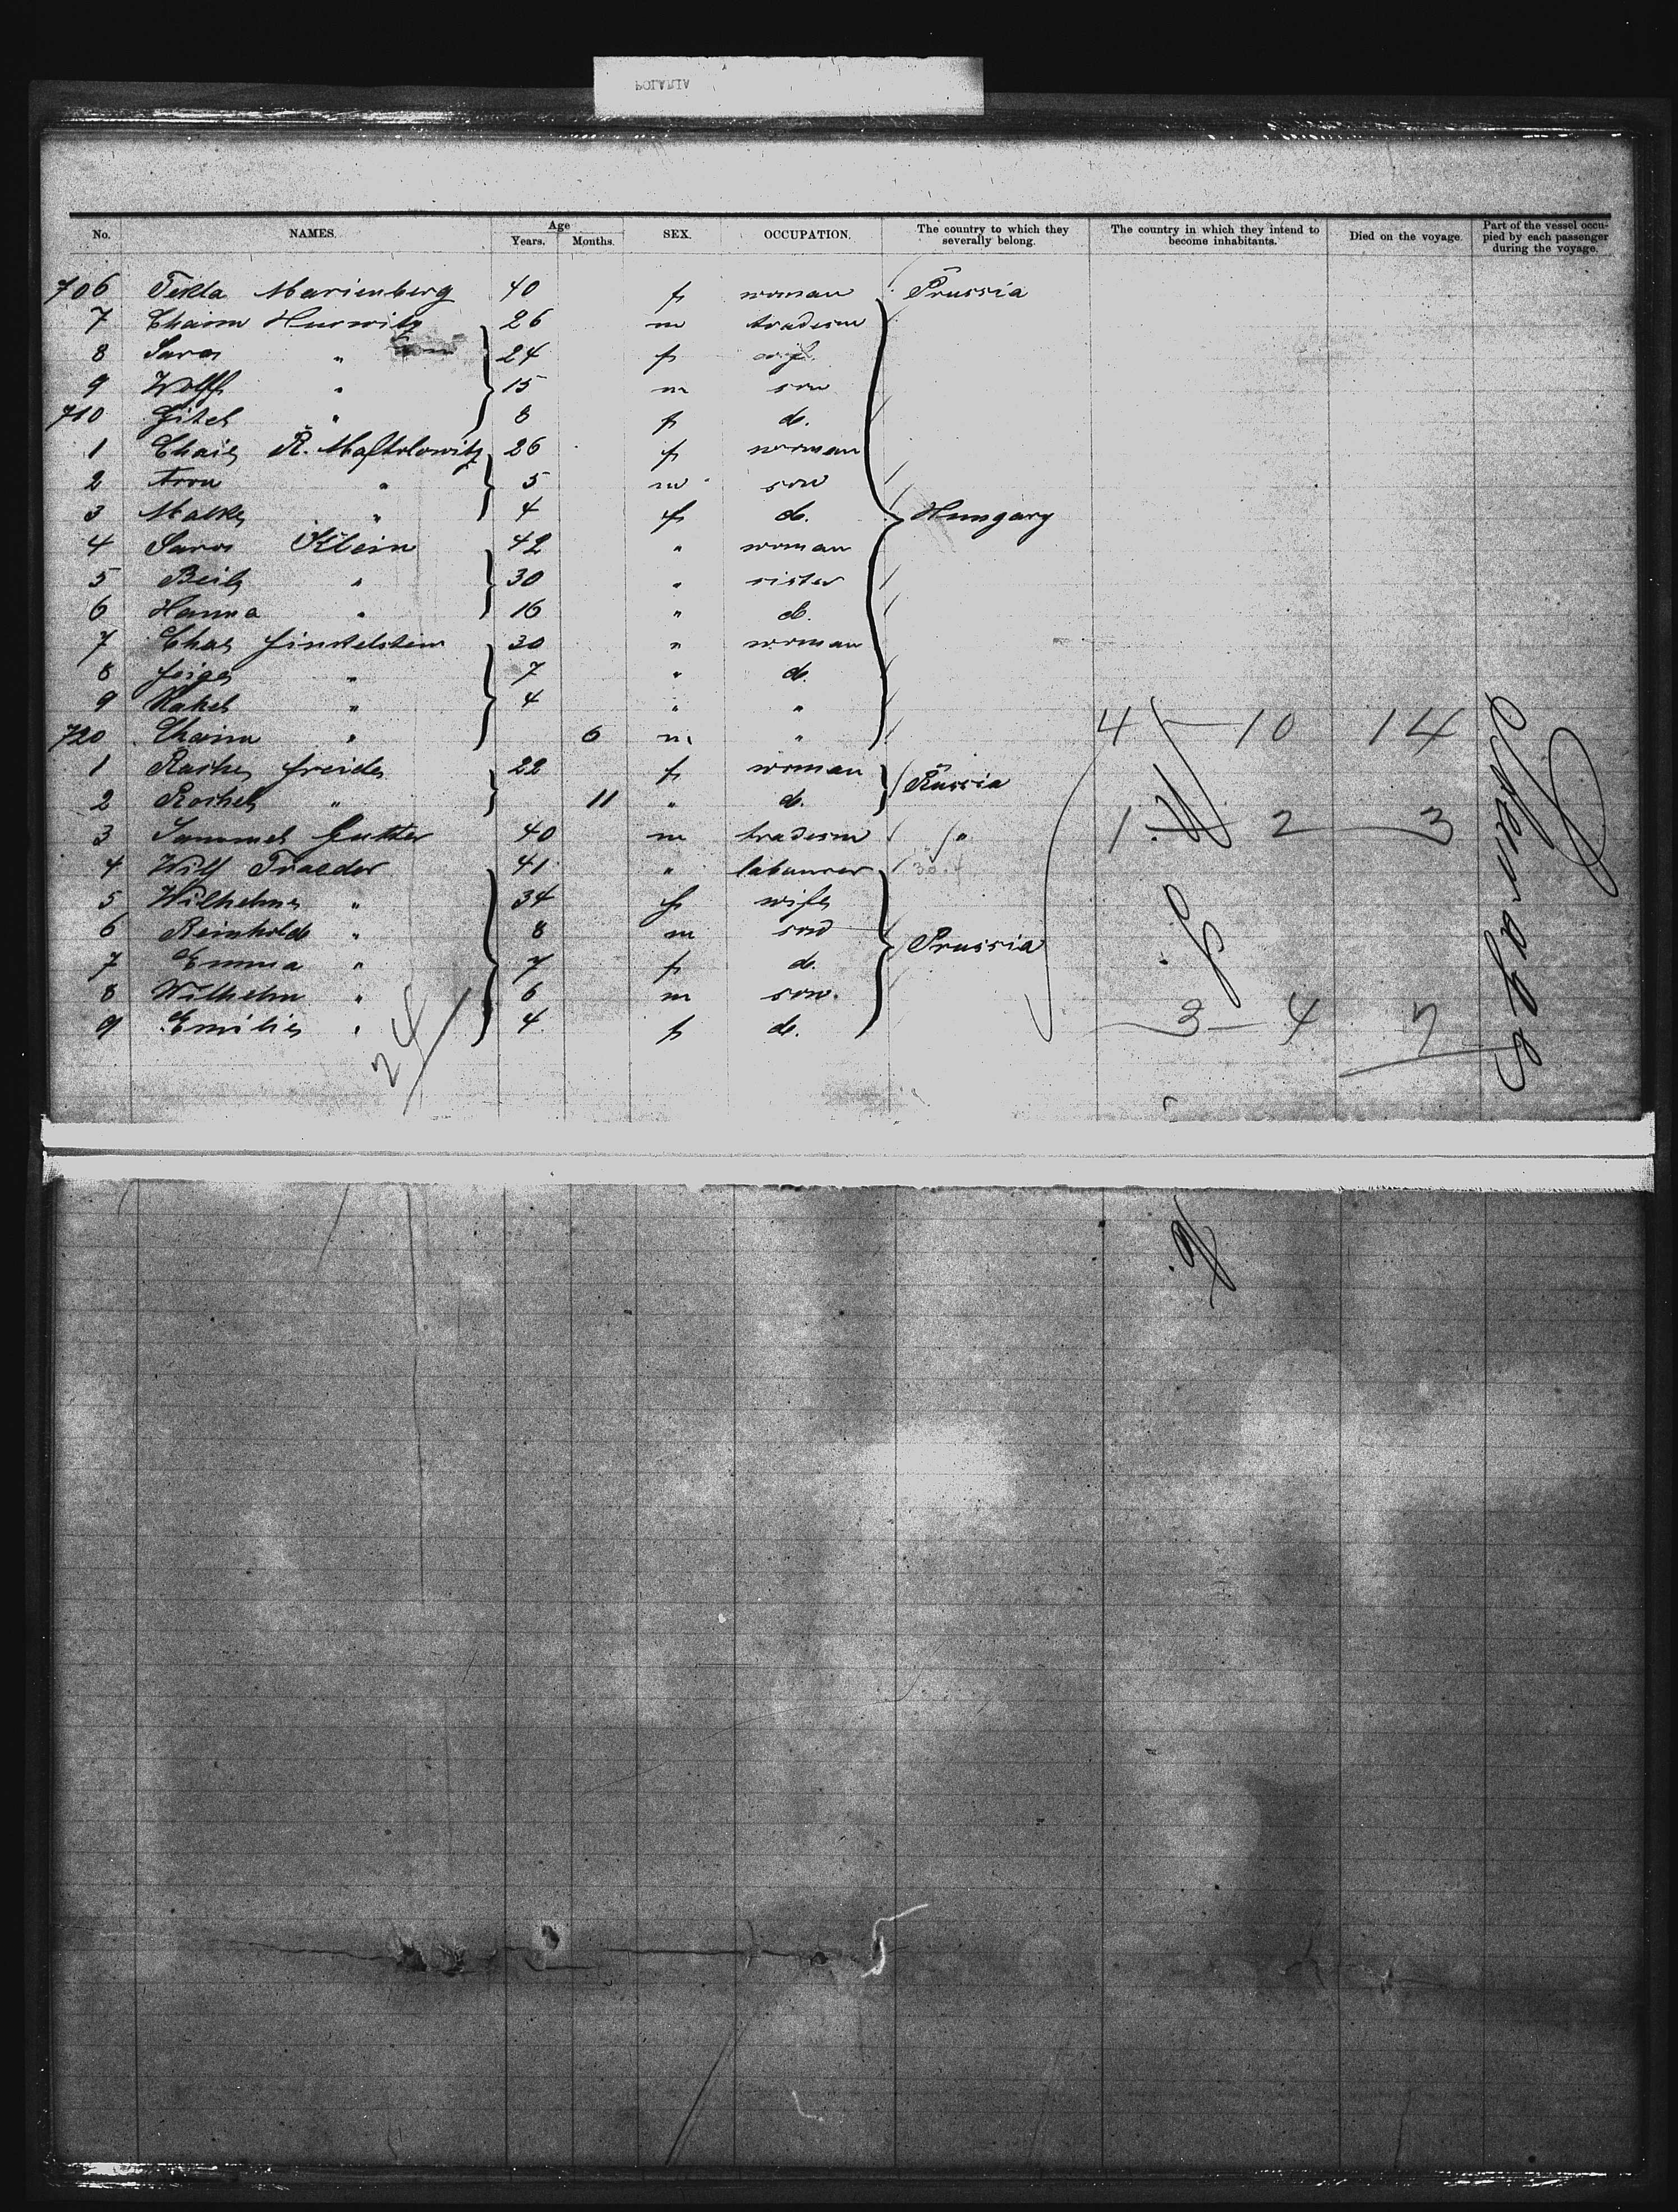 POLARIA
No. NAMES. Age Years. Months. SEX. OCCUPATION. The country to which they severally belong. The country in which they intend to become inhabitants. Died on the voyage. Part of the vessel occupied by each passenger during the voyage.
706 Tekla Marienberg 40 f woman Prussia
7 Chaim Hurwitz 26 m tradesm
8 Sara " 24 f wife
9 Wolff " 15 m son
710 Gitel " 8 f d.
1 Chaie R. 26 f woman
2 Aron " 5 m son
3 Malke " 4 f d. Hungary
4 Sara Klein 42 " woman
5 Beile " 30 " sister
6 Hanna " 16 " d.
7 Chas Finkelstein 30 " woman
8 Feige " 7 " d.
9 Rahel " 4 " "
720 Chaim " 6 m " 4 10 14
1 Rashe Freide 22 f woman Russia
2 Rochel " 11 " d.
3 Sammel Gutter 40 m tradesm " 1 2 3
4 Wilh 41 " labourer
5 Wilhelmine " 34 f wife
6 Reinhold " 8 m son Prussia
7 Emma " 7 f d.
8 Wilhelm " 6 m son.
9 Emilie " 4 f d. 3 4 7
24
Steerage